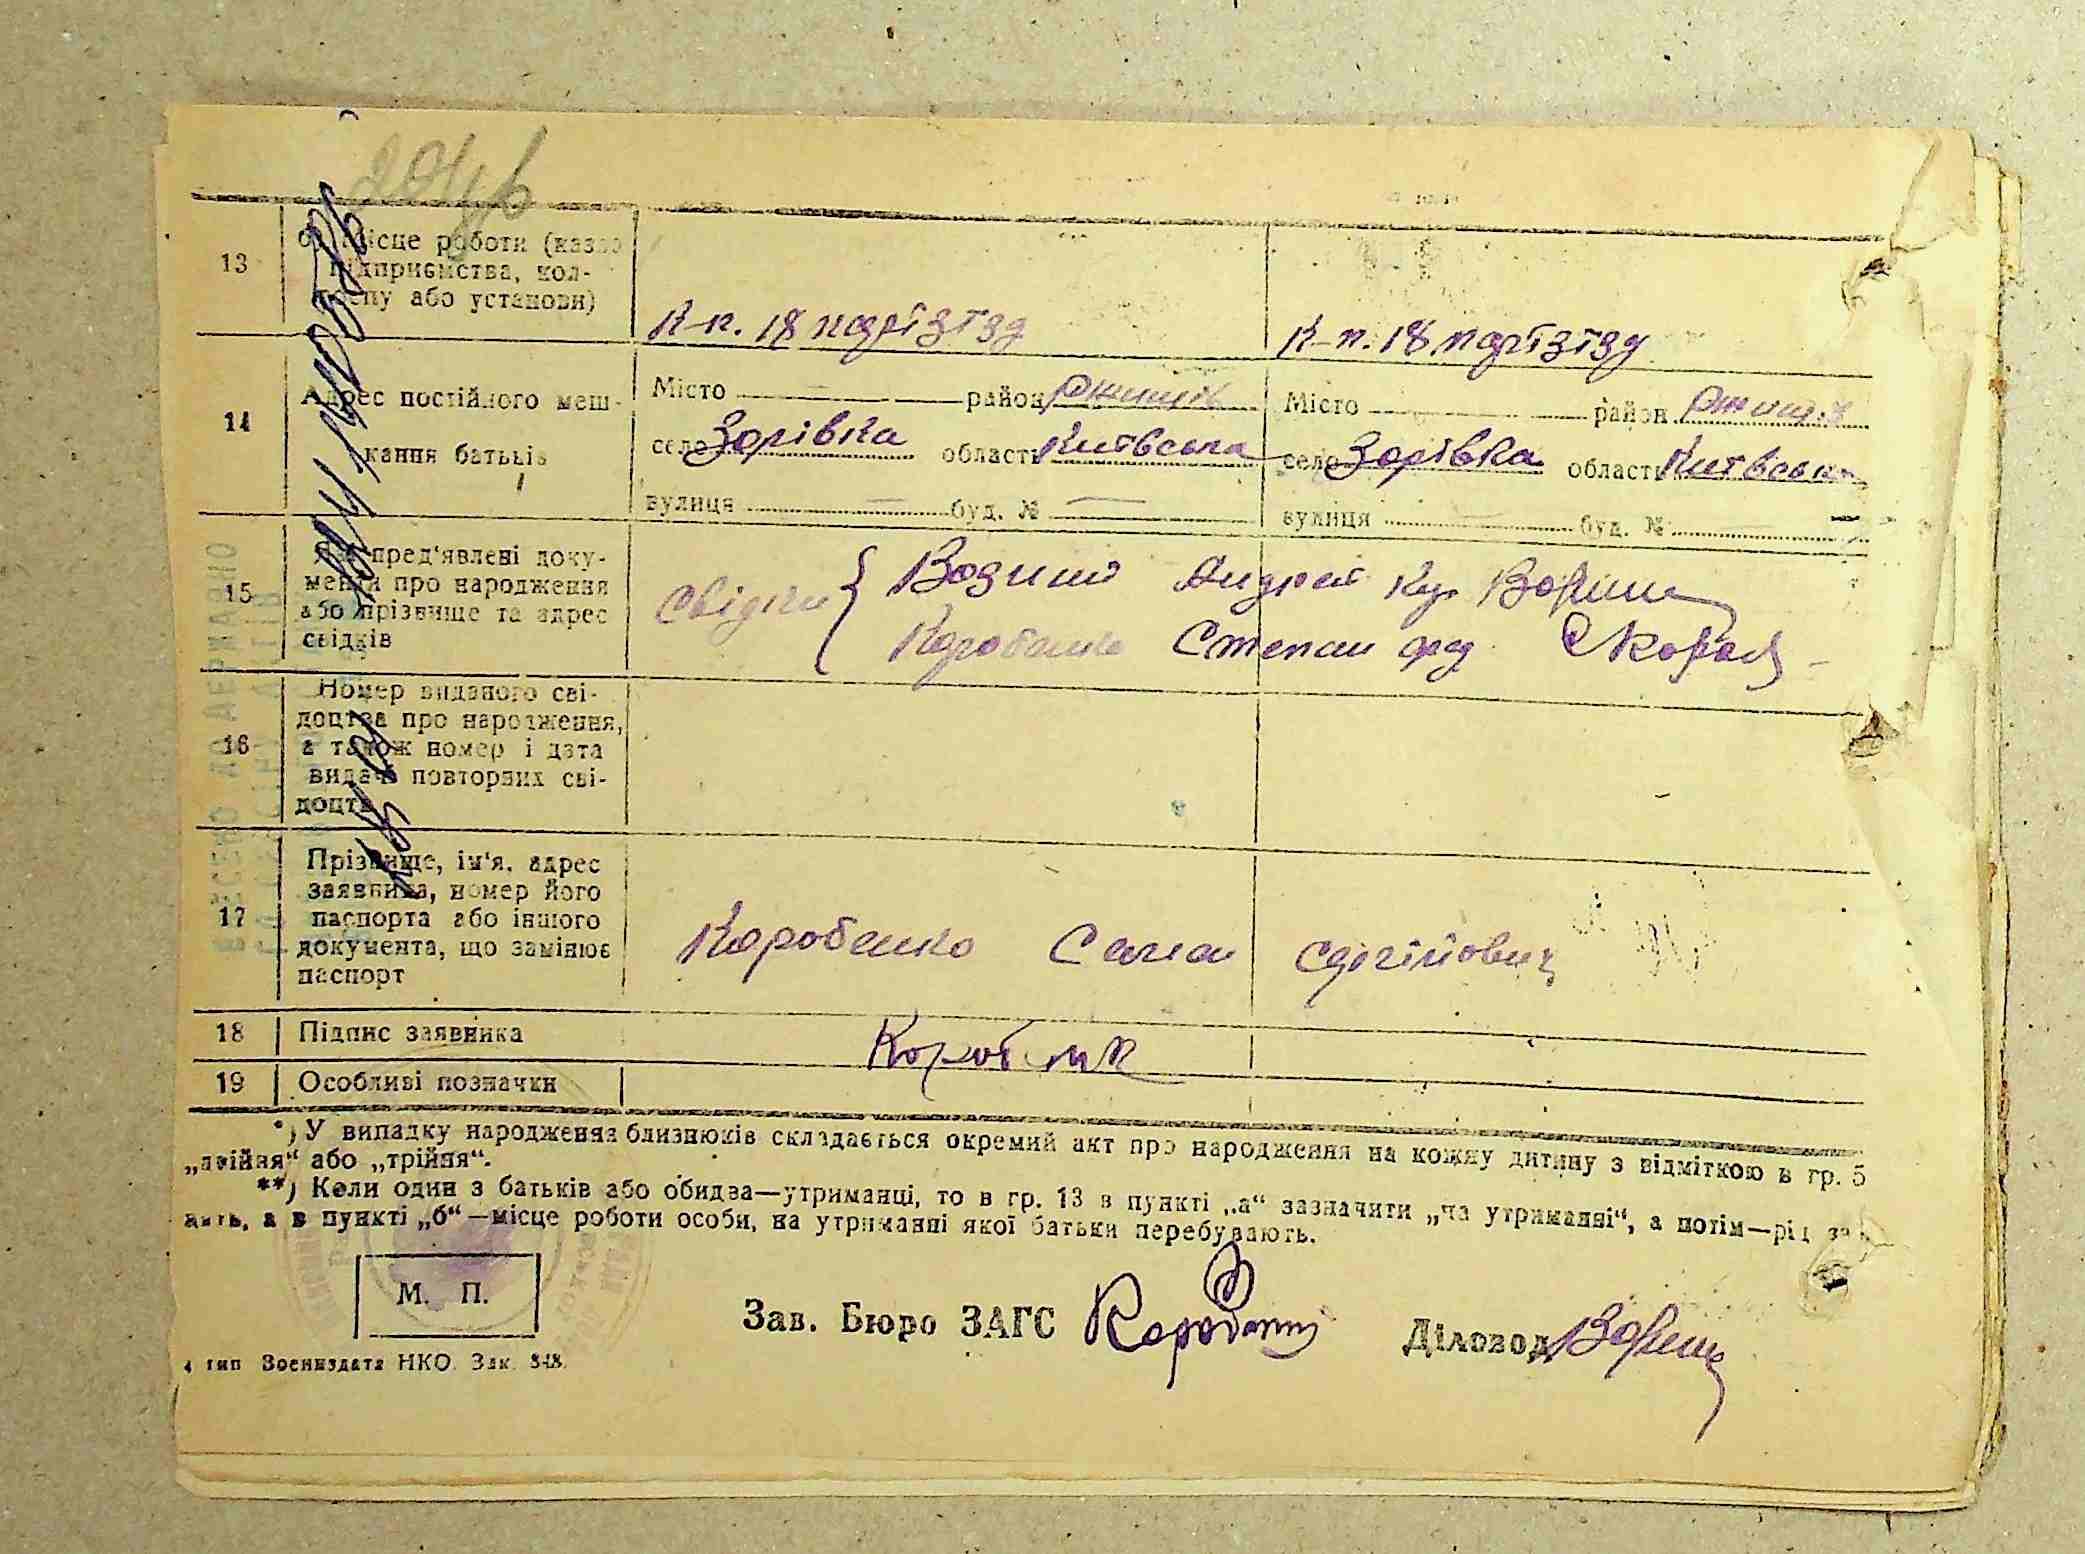 13
б) місце роботи (назва
підприємства, кол-
госпу або установи)
К-п. 18 партз'їзд
К-п. 18 партз'їзду
14
Адрес постійного меш-
кання батьків
Місто район Ржищів
село Зорівка область Київська
вулиця буд. №
Місто район Ржищів
село Зорівка область Київська
вулиця буд. №
15
Які пред'явлені доку-
менти про народження
або прізвище та адрес
свідків
Свідки Андрей
Коробенко Степан
16
Номер виданого сві-
доцтва про народження,
а також номер і дата
видачі повторних сві-
доцтв
17
Прізвище, ім'я, адрес
заявника, номер його
паспорта або іншого
документа, що замінює
паспорт
Коробенко Сергійович
18 Підпис заявника
19 Особливі позначки
*) У випадку народження близнюків складається окремий акт про народження на кожну дитину з відміткою в гр. 5
„двійня“ або „трійня“.
**) Коли один з батьків або обидва—утриманці, то в гр. 13 в пункті „а“ зазначити „на утриманні“, а потім—рід за
нять, а в пункті „б“—місце роботи особи, на утриманні якої батьки перебувають.
М. П.
Зав. Бюро ЗАГС
Діловод
4 тип Воениздата НКО. Зак. 848.